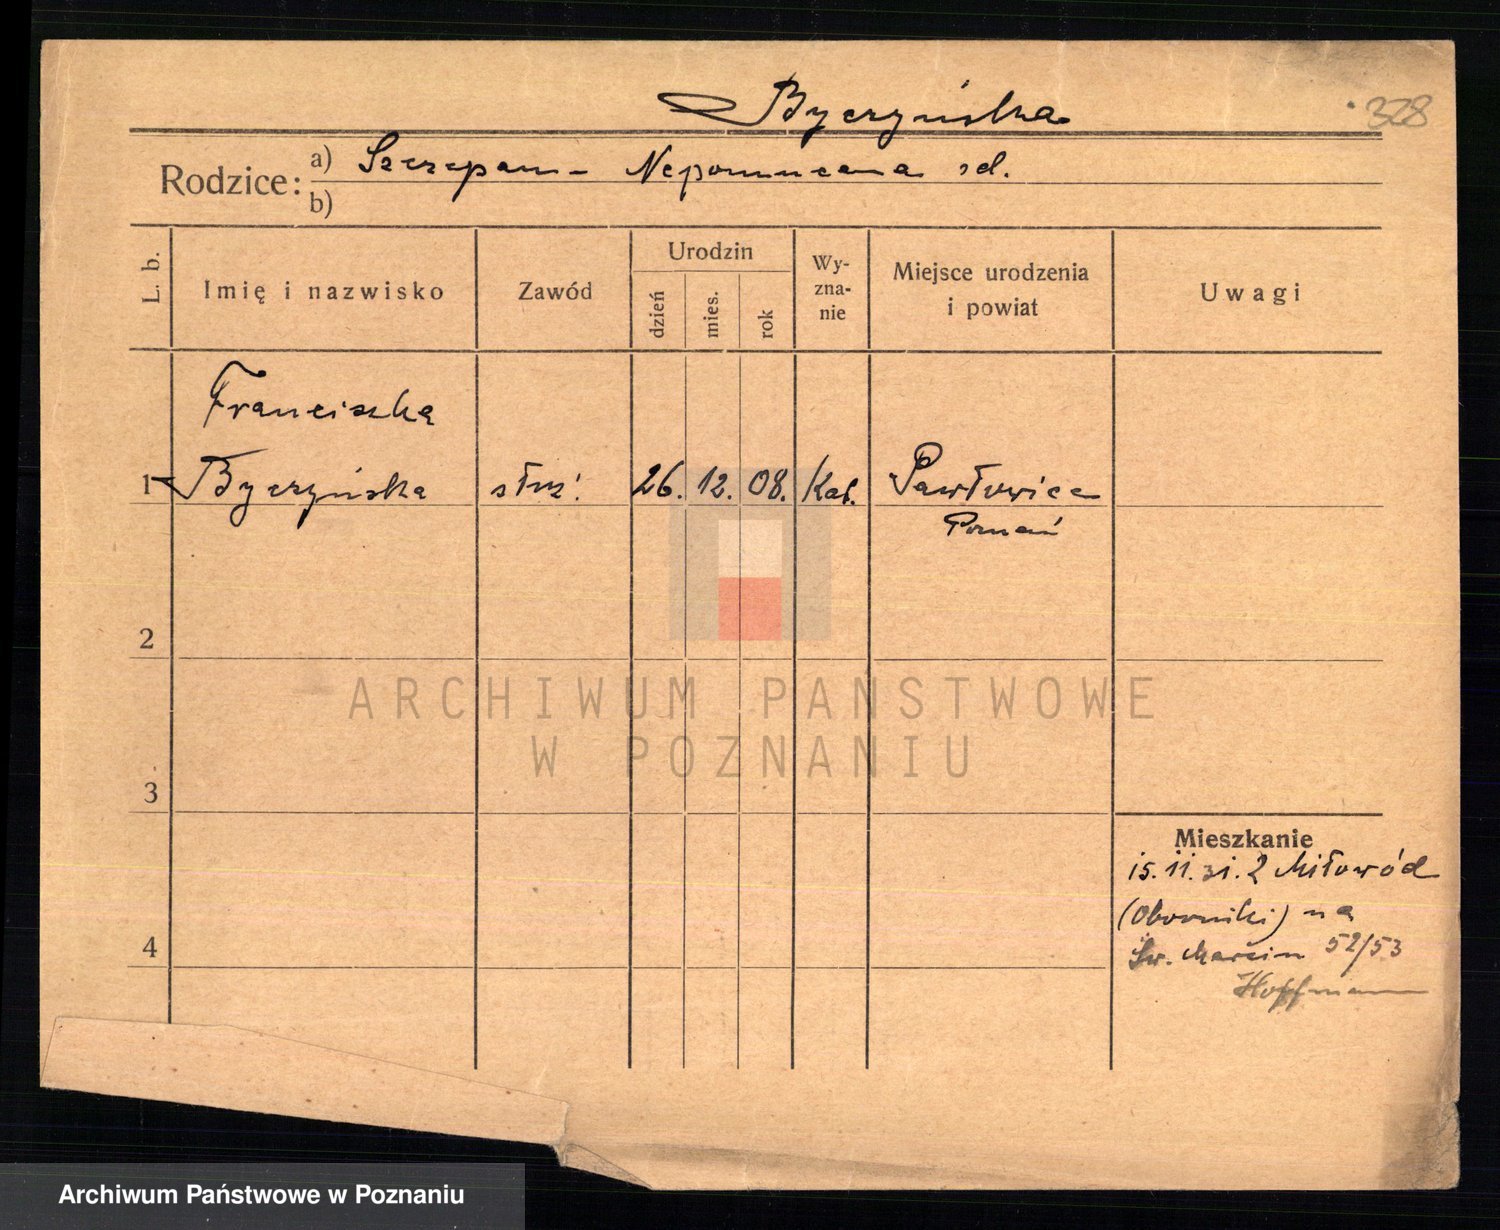 Byczyńska
328
Rodzice:
a) Szczepan - Nepomucena
b)
L. b.
Imię i nazwisko
Zawód
Urodzin
dzień
mies.
rok
Wy-
zna-
nie
Miejsce urodzenia
i powiat
Uwagi
Franciszka
1 Byczyńska służ. 26. 12. 08. Kat. Pawłowice
Poznań
2
ARCHIWUM PAŃSTWOWE
W POZNANIU
3
Mieszkanie
15.11.31. z Miłowód
(Oborniki) na
4
Św. Marcin 52/53
Hoffmann
Archiwum Państwowe w Poznaniu